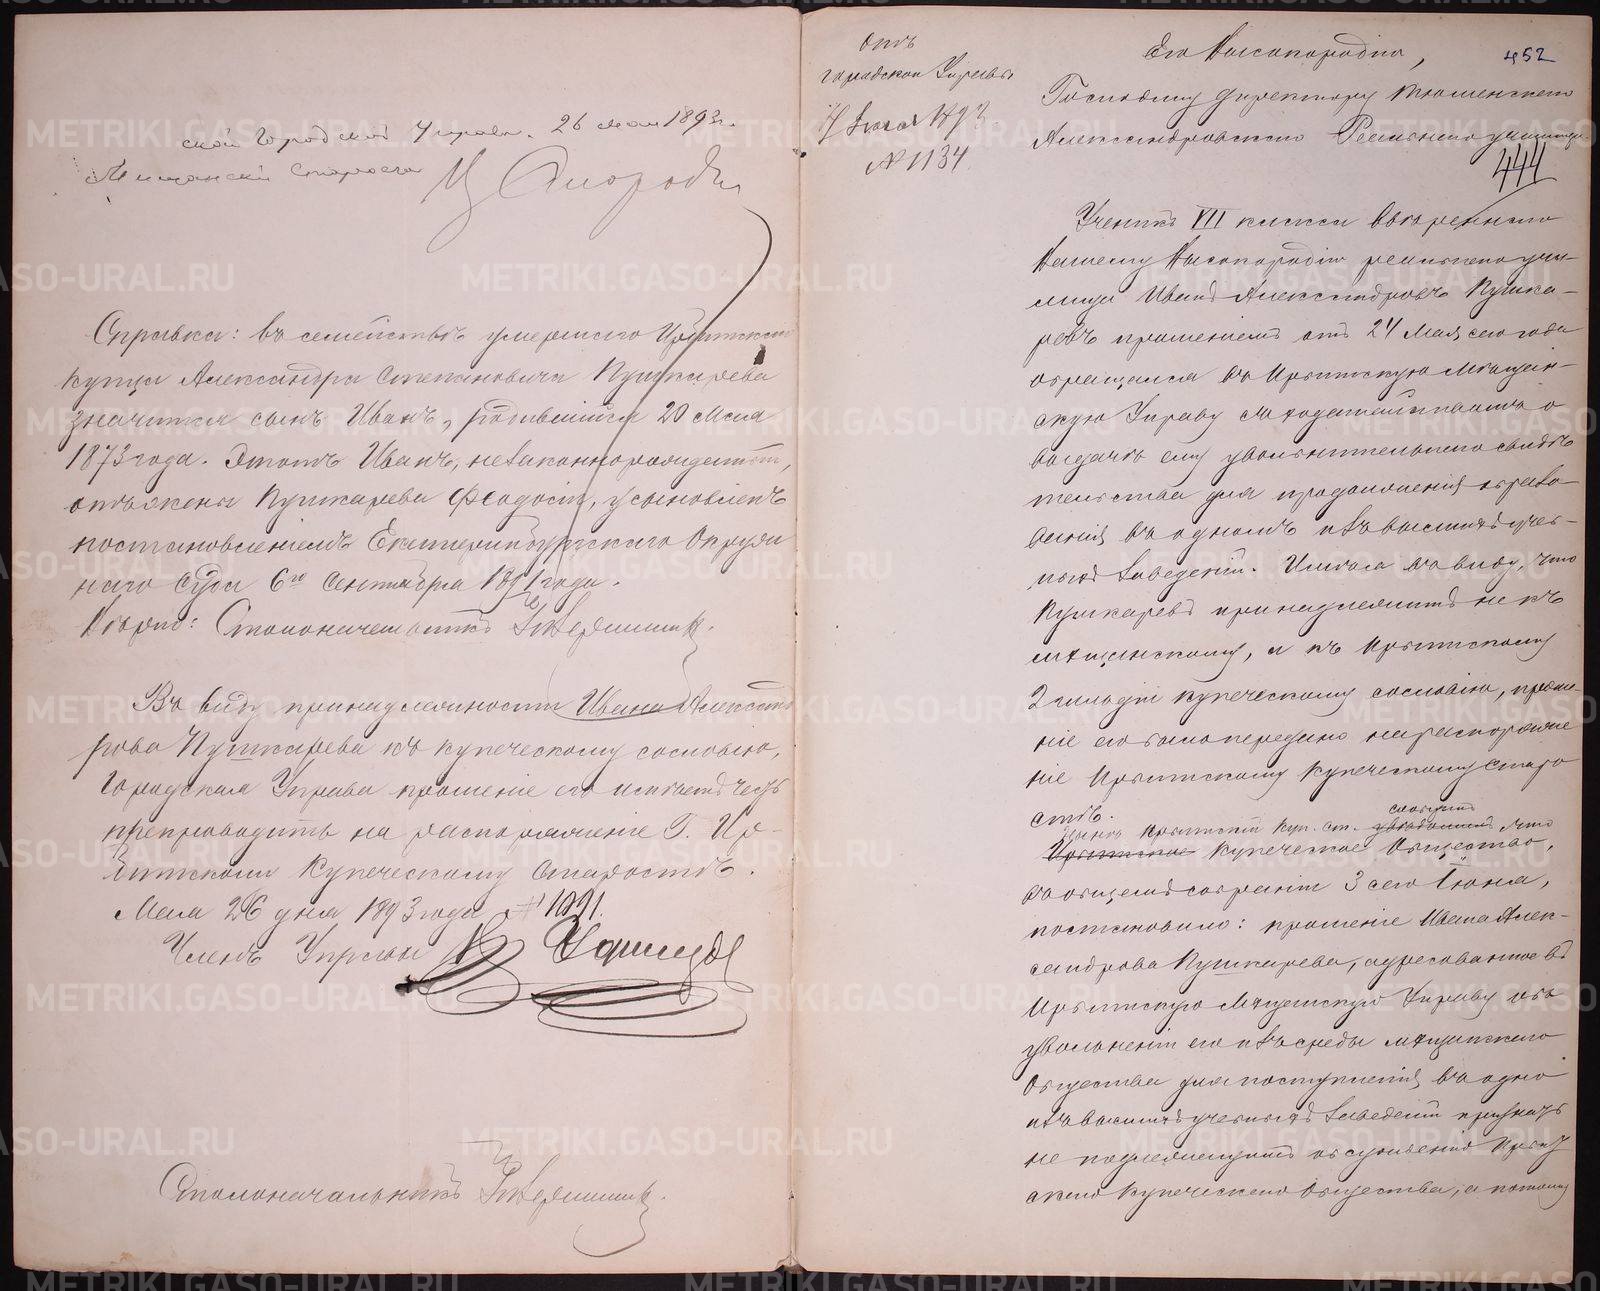 ской Городской Управы. 26 мая 1893 г.
Мещанскій Староста
Справка: въ семействѣ умершаго Ирбитскаго
купца Александра Степановича Пушкарева
значится сынъ Иванъ, родившійся 20 Мая
1873 года. Этотъ Иванъ, незаконнорожденный,
отъ жены Пушкарева Феодосіи, усыновленъ
постановленіемъ Екатеринбургскаго Окруж
наго Суда 6го Сентября 1891 года.
Вѣрно: Столоначальникъ
Въ виду принадлежности Ивана Александ
рова Пушкарева къ купеческому сословію,
Городская Управа прошеніе его имѣетъ честь
препроводить на распоряженіе Г. Ир-
битскому Купеческому Старостѣ.
Мая 26 дня 1893 года № 1091.
Членъ Управы
Столоначальникъ
Отъ
городской Управы
1893
№ 1134
Его Высокородію,
452
Господину Директору Тюменскаго
Александровскаго Реальнаго училища.
444
Ученикъ VII класса ввѣреннаго
Вашему Высокородію реальнаго учи-
лища Иванъ Александровъ Пушка-
ревъ прошеніемъ отъ 24 Мая сего года
обращался въ Ирбитскую Мѣщан-
скую Управу съ ходатайствомъ о
выдачѣ ему увольнительнаго свидѣ
тельства для продолженія образо-
ванія въ одномъ изъ высшихъ учеб-
ныхъ заведеній. Имѣя въ виду, что
Пушкаревъ принадлежитъ не къ
мѣщанскому, а къ Ирбитскому
2 гильдіи купеческому сословію, проше-
ніе его было передано на распоряже
ніе Ирбитскому Купеческому Старо
стѣ.
Ирбитскій Куп. ст. увѣдомилъ что
Ирбитское Купеческое Общество,
въ общемъ собраніи 3 сего Іюня,
постановило: прошеніе Ивана Алек-
сандрова Пушкарева, адресованное въ
Ирбитскую Мѣщанскую Управу объ
увольненіи его изъ среды мѣщанскаго
общества для поступленія въ одно
изъ высшихъ учебныхъ заведеній признать
не подлежащимъ обсужденію Ирбит
скаго Купеческаго Общества, а потому
METRIKI.GASO-URAL.RU